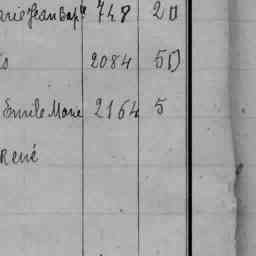 arie Jean Bapte 748 20
s 2084 50
Emile Marie 2164 5
René